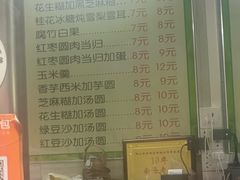 花生糊加黑芝麻糊 7元 8元
桂花冰糖炖雪梨雪耳 7元 8元
腐竹白果 7元 8元
红枣圆肉当归 7元 8元
红枣圆肉当归加蛋 8元 9元
玉米羹 8元 9元
香芋西米加芋圆 8元 9元
芝麻糊加汤圆 8元 10元
花生糊加汤圆 8元 10元
绿豆沙加汤圆 8元 10元
红豆沙加汤圆 8元 10元
包